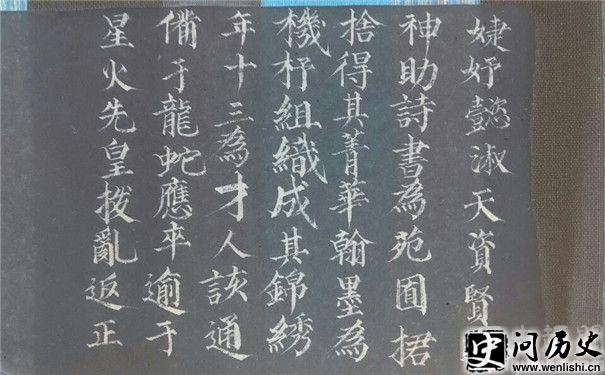 婕妤懿淑天資賢
神助詩書為苑囿捃
捨得其菁華翰墨為
機杼組織成其錦綉
年十三為才人該通
俻于龍蛇應卒逾于
星火先皇撥亂返正
问历史
www.wenlishi.cn